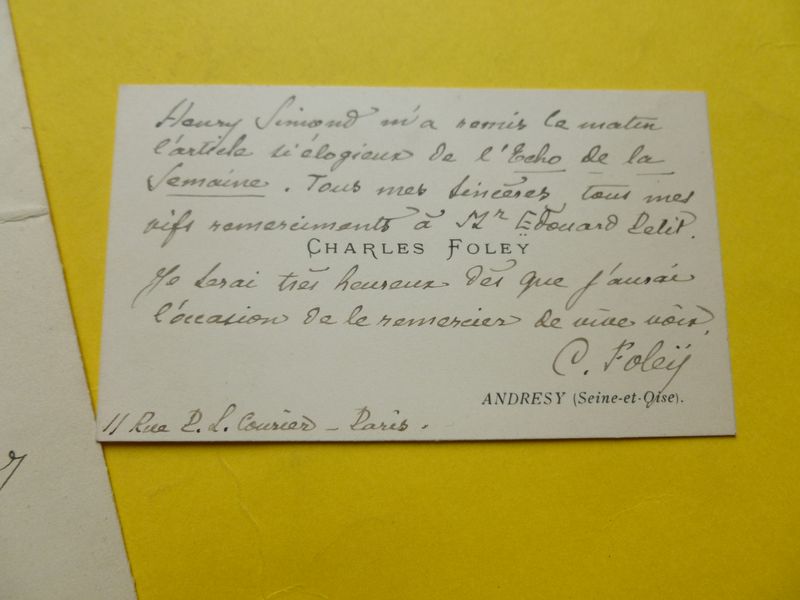 Henry Simond m'a remis le matin
l'article si élogieux de l'Echo de la
Semaine. Tous mes sincères, tous mes
vifs remerciments à Mr Edouard Petit.
CHARLES FOLEŸ
Je serai très heureux dès que j'aurai
l'occasion de le remercier de vive voix.
C. Foleÿ
ANDRESY (Seine-et-Oise).
11 Rue P. L. Courier - Paris.